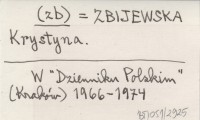 (zb) = ZBIJEWSKA
Krystyna.
W "Dzienniku Polskim"
(Kraków) 1966-1974